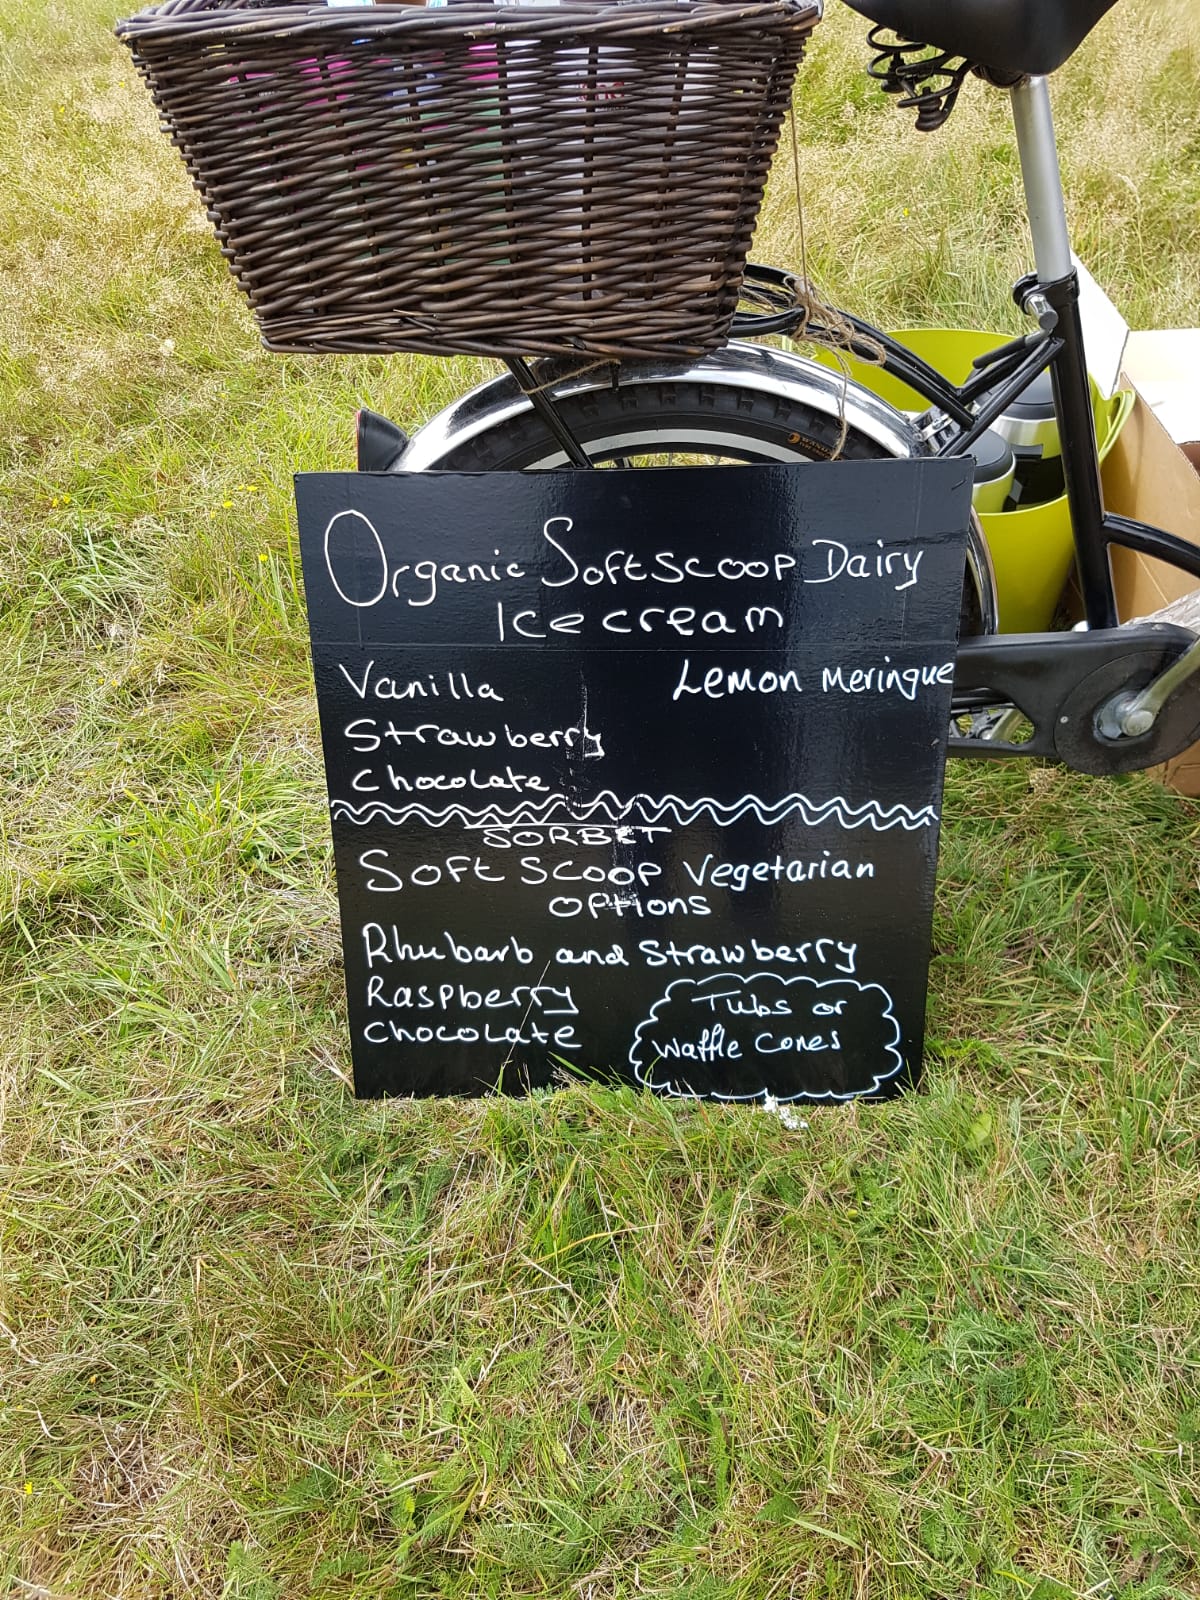 Organic Softscoop Dairy
Ice cream
Vanilla
Lemon Meringue
Strawberry
Chocolate
SORBET
Soft Scoop Vegetarian
Options
Rhubarb and Strawberry
Raspberry
Chocolate
Tubs or
Waffle Cones